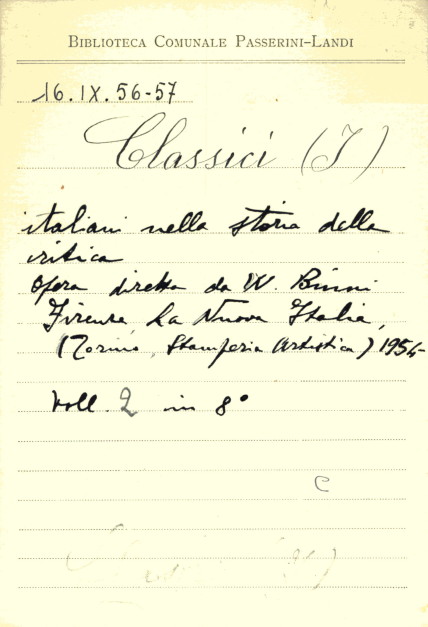 BIBLIOTECA COMUNALE PASSERINI-LANDI
16.IX.56-57
Classici (I)
italiani nella storia della
critica
Opera diretta da W. Binni
Firenze, La Nuova Italia,
(Torino, Stamperia Artistica) 1954-
Voll. 2 in 8°
C